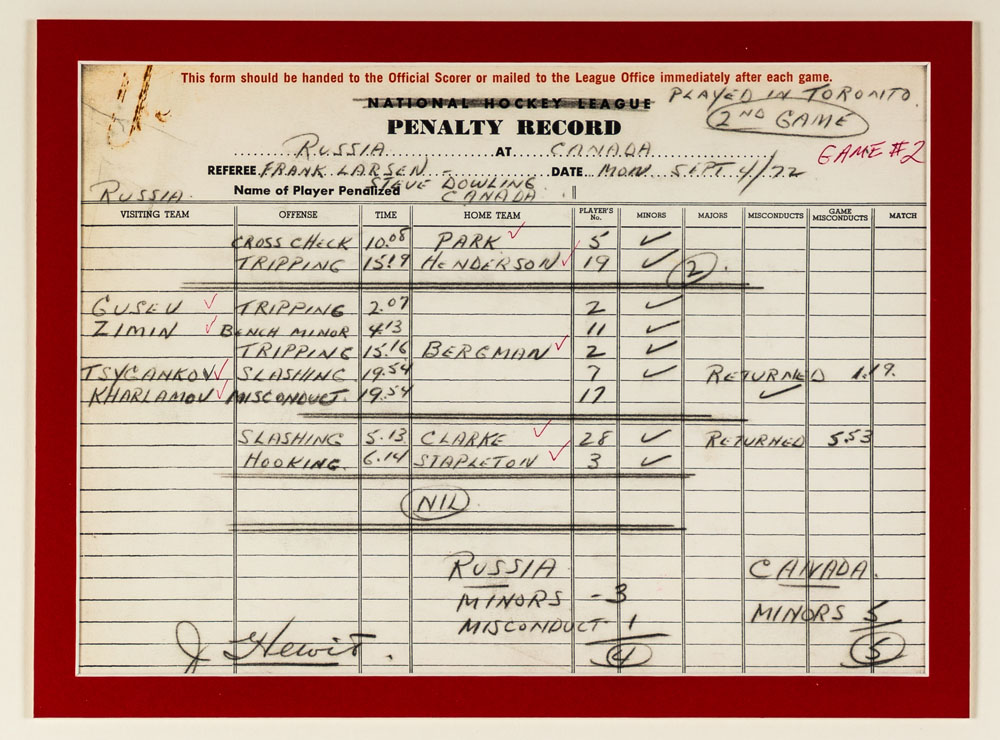 This form should be handed to the Official Scorer or mailed to the League Office immediately after each game.
NATIONAL HOCKEY LEAGUE PLAYED IN TORONTO
PENALTY RECORD 2ND GAME
RUSSIA AT CANADA GAME #2
REFEREE FRANK LARSEN - DATE MON SEPT 4/72
STEVE DOWLING
RUSSIA Name of Player Penalized CANADA
VISITING TEAM OFFENSE TIME HOME TEAM PLAYER'S No. MINORS MAJORS MISCONDUCTS GAME MISCONDUCTS MATCH
CROSS CHECK 10.08 PARK ✓ 5 ✓
TRIPPING 15.19 HENDERSON ✓ 19 ✓ 2
GUSEV ✓ TRIPPING 2.07 2 ✓
ZIMIN ✓ BENCH MINOR 4.13 11 ✓
TRIPPING 15.16 BERGMAN ✓ 2 ✓
TSYGANKOV ✓ SLASHING 19.54 7 ✓ RETURNED 1.19.
KHARLAMOV ✓ MISCONDUCT. 19.54 17 ✓
SLASHING 5.13 CLARKE ✓ 28 ✓ RETURNED 5.53
HOOKING. 6.14 STAPLETON ✓ 3 ✓
NIL
RUSSIA CANADA.
MINORS - 3
MINORS 5
MISCONDUCT 1
4 5
J Hewitt.